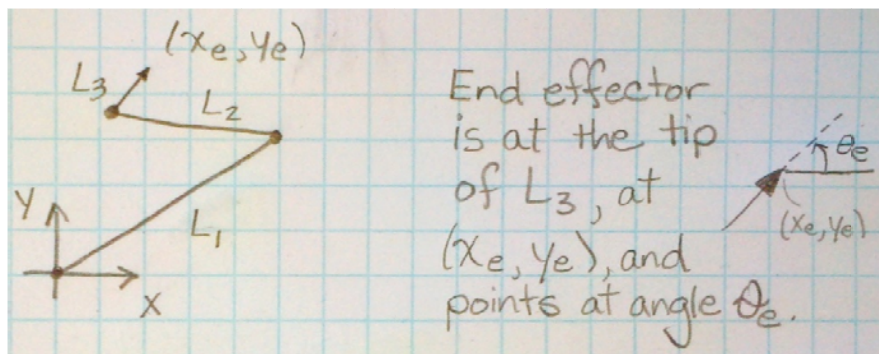 (xe, ye)
L3
L2
L1
Y
X
End effector
is at the tip
of L3, at
(xe, ye), and
points at angle θe.
θe
(xe, ye)